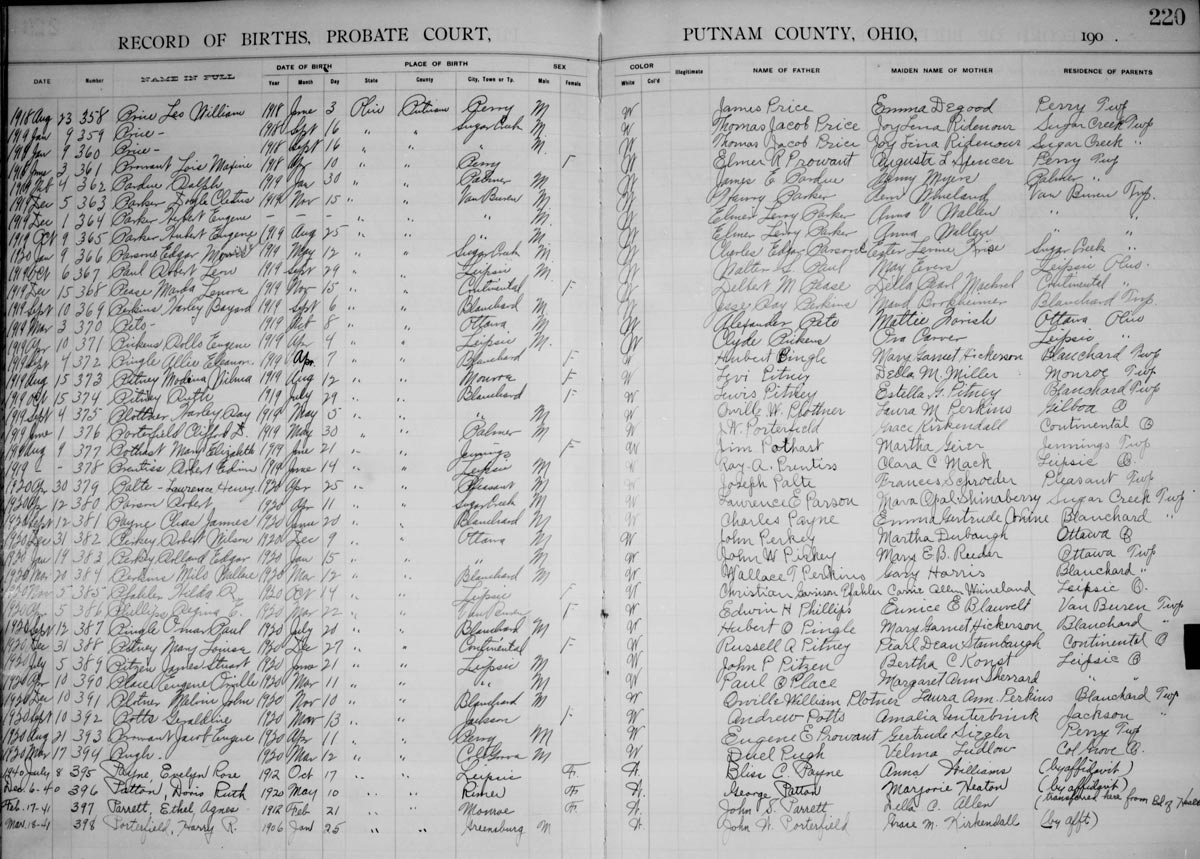 220
RECORD OF BIRTHS, PROBATE COURT, PUTNAM COUNTY, OHIO, 190 .
DATE Number NAME IN FULL DATE OF BIRTH PLACE OF BIRTH SEX COLOR Illegitimate NAME OF FATHER MAIDEN NAME OF MOTHER RESIDENCE OF PARENTS
Year Month Day State County City, Town or Tp. Male Female White Col'd
1918 Aug 23 358 Price Les William 1918 June 3 Ohio Putnam Perry M W James Price Emma Degood Perry Twp
1919 Jan 9 359 Price - 1918 Sept 16 " " Sugar Creek M W Thomas Jacob Price Joy Lena Ridenour Sugar Creek Twp
1919 Jan 9 360 Price - 1918 Sept 16 " " " M. W Thomas Jacob Price Joy Lena Ridenour Sugar Creek "
3 361 Prowant Lois Maxine 1918 Apr 10 " " Perry F W Elmer R Prowant Augusta L Spencer Perry Twp
4 362 Pardue Ralph 1919 Jan 30 " " Palmer M W James E Pardue Myers Palmer "
1919 Dec 5 363 Parker Cletus 1919 Nov 15 " " Van Buren M W Parker Wineland Van Buren Twp.
1919 Dec 1 364 Parker Hubert Eugene - - - " " " M W Elmer Leroy Parker Anna V Wallen " "
1919 Oct 9 365 Parker Hubert Eugene 1919 Aug 25 " " " M. W Elmer Leroy Parker Anna Wallen " "
1920 Jan 9 366 Parsons Edgar 1919 May 12 " " Sugar Creek M. W Charles Edgar Parsons Ester Price Sugar Creek "
1919 Oct 6 367 Paul Robert Leon 1919 Sept 29 " " Leipsic M. W Walter S. Paul May Evers Leipsic Ohio.
1919 Dec 15 368 Pease Marda Lenora 1919 Nov 15 " " Continental F W Delbert M Pease Della Pearl Continental "
1919 Sept 10 369 Perkins Harley Bayard 1919 Sept 6 " " Blanchard M. W Jesse Ray Perkins Maud Blanchard Twp.
1919 Mar 3 370 Peto - 1919 8 " " Ottawa M. W Alexander Peto Mattie Ottawa Ohio
1919 Apr 10 371 Pickens Rolls Eugene 1919 Apr 9 " " Leipsic M. W Clyde Pickens Carver Leipsic "
1919 Sept 4 372 Pingle Allie Eleanor 1919 Apr 7 " " Blanchard F W Hubert Pingle Mary Garnet Hickerson Blanchard Twp
1919 Aug 15 373 Pitney Wilma 1919 Aug 12 " " Monroe F W Levi Pitney Della M. Miller Monroe Twp
1919 Oct 15 374 Pitney Ruth 1919 July 29 " " Blanchard F W Lewis Pitney Estella G. Pitney Blanchard Twp
1919 Sept 4 375 Plottner Harley Ray 1919 May 5 " " " M W Orville W. Plottner Laura M Perkins Gilboa O
1919 June 1 376 Porterfield Clifford D. 1919 May 30 " " Palmer M W J.W. Porterfield Grace Kirkendall Continental O
1919 Aug 9 377 Pothast Mary Elizabeth 1919 June 21 " " Jennings F W Jim Pothast Martha Geier Jennings Twp
1919 - - 378 Prentiss Robert Edwin 1919 June 14 " " Leipsic M W Ray A. Prentiss Clara C Mack Leipsic O.
1920 Apr 30 379 Palte - Lawrence Henry 1920 Apr 25 " " Pleasant M W Joseph Palte Frances Schroeder Pleasant Twp
12 380 Parson Robert 1920 Apr 11 " " Sugar Creek M W Lawrence E Parson Mara Opal Shinaberry Sugar Creek Twp
1920 Sept 12 381 Payne James 1920 June 20 " " Blanchard M W Charles Payne Emma Gertrude Blanchard "
1920 Dec 31 382 Perkey Robert Wilson 1920 Dec 9 " " Ottawa M W John Perkey Martha Durbaugh Ottawa O
1920 Jan 19 383 Pirkey Allard Edgar 1920 Jan 15 " " " M W John W Pirkey Mary E.B. Reeder Ottawa Twp
1920 Mar 20 384 Perkins Milo Wallace 1920 Mar 12 " " Blanchard M W Wallace T Perkins Harris Blanchard "
1920 5 385 Pfahler Hilda R. 1920 Oct 14 " " Leipsic F W Christian Pfahler Carrie Ellen Wineland Leipsic O.
1920 Apr 5 386 Phillips Regina E. 1920 Mar 22 " " Van Buren F W Edwin H Phillips Eunice E Blauvelt Van Buren Twp
1920 Sept 12 387 Pingle Omar Paul 1920 July 20 " " Blanchard M W Hubert O Pingle Mary Garnet Hickerson Blanchard "
1920 Dec 31 388 Pitney Mary Louisa 1920 Dec 27 " " Continental F W Russell A Pitney Pearl Dean Stambaugh Continental O
1920 July 5 389 Pitzen James Stuart 1920 June 21 " " Leipsic M W John P Pitzen Bertha C Konst Leipsic O
1920 Apr 10 390 Place Eugene Orville 1920 Mar 11 " " " M W Paul O Place Margaret Ann Sherrard " "
1920 Dec 10 391 Plotner Melvin John 1920 Nov 10 " " Blanchard M W Orville William Plotner Laura Ann. Perkins Blanchard Twp
1920 Sept 10 392 Potts Geraldine 1920 Mar 13 " " Jackson F W Andrew Potts Amalia Unterbrink Jackson "
1920 Aug 21 393 Prowant Jacob Eugene 1920 Apr 11 " " Perry M W Eugene E Prowant Gertrude Sizgler Perry Twp
1920 Mar 17 394 Pugh - 1920 Mar 12 " " Col Grove M W Duel Pugh Velma Ludlow Col Grove O.
1940 July 8 395 Payne, Evelyn Rose 1912 Oct 17 " " Leipsic F. W. Bliss C. Payne Anna Williams (by affidavit)
Dec. 6-40 396 Patton, Doris Ruth 1920 May 10 " " Rimer F. W. George Patton Marjorie Heaton (by affidavit)
Feb. 17-41 397 Parrett, Ethel Agnes 1912 Feb 21 " " Monroe F. W. John S. Parrett Della C. Allen (transfered here from Bd of Health
Mar. 18-41 398 Porterfield, Harry R. 1906 Jan 25 " " Greensburg M W. John W. Porterfield Grace M. Kirkendall (by afft)